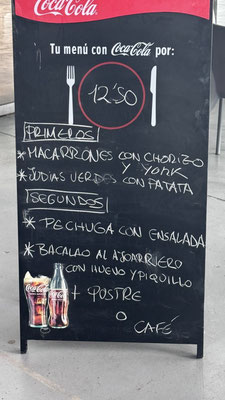 Coca-Cola
Tu menú con Coca-Cola por:
12'50
PRIMEROS
* MACARRONES CON CHORIZO
Y YORK
* JUDIAS VERDES CON PATATA
SEGUNDOS
* PECHUGA CON ENSALADA
* BACALAO AL AJOARRIERO
CON HUEVO Y PIQUILLO
+ POSTRE
O
CAFÉ
Coca-Cola
Coca-Cola